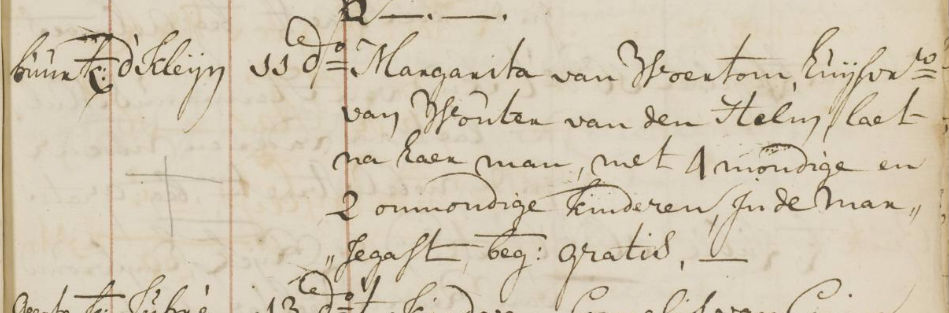 buurt k: d' Kleijn 11e do Margarita van Woertom, huijsvro
van Wouter van den Helm, laet
na haer man, met 4 mondige en
2 onmondige kinderen, In de Man„
„segast, beg: gratis. —